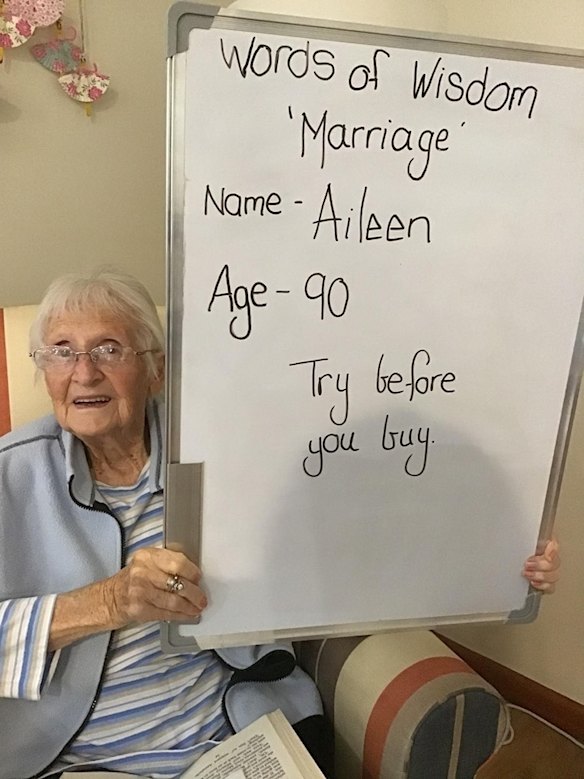 Words of Wisdom
'Marriage'
Name - Aileen
Age - 90
Try before
you buy.